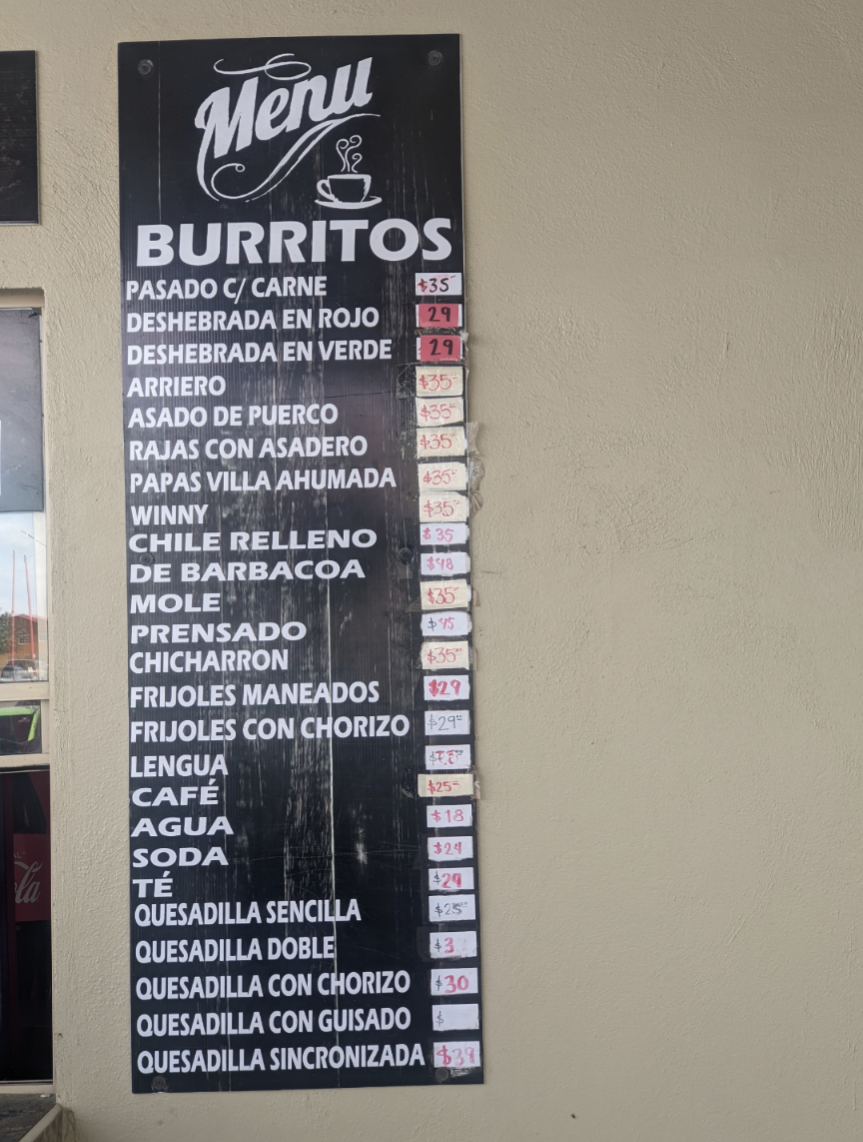 Menu
BURRITOS
PASADO C/ CARNE $35
DESHEBRADA EN ROJO 29
DESHEBRADA EN VERDE 29
ARRIERO $35
ASADO DE PUERCO $35
RAJAS CON ASADERO $35
PAPAS VILLA AHUMADA $35
WINNY $35
CHILE RELLENO $35
DE BARBACOA $48
MOLE $35
PRENSADO $45
CHICHARRON $35
FRIJOLES MANEADOS $29
FRIJOLES CON CHORIZO $29
LENGUA
CAFÉ $25
AGUA $18
SODA $24
TÉ $29
QUESADILLA SENCILLA $25
QUESADILLA DOBLE $3
QUESADILLA CON CHORIZO $30
QUESADILLA CON GUISADO $
QUESADILLA SINCRONIZADA $39